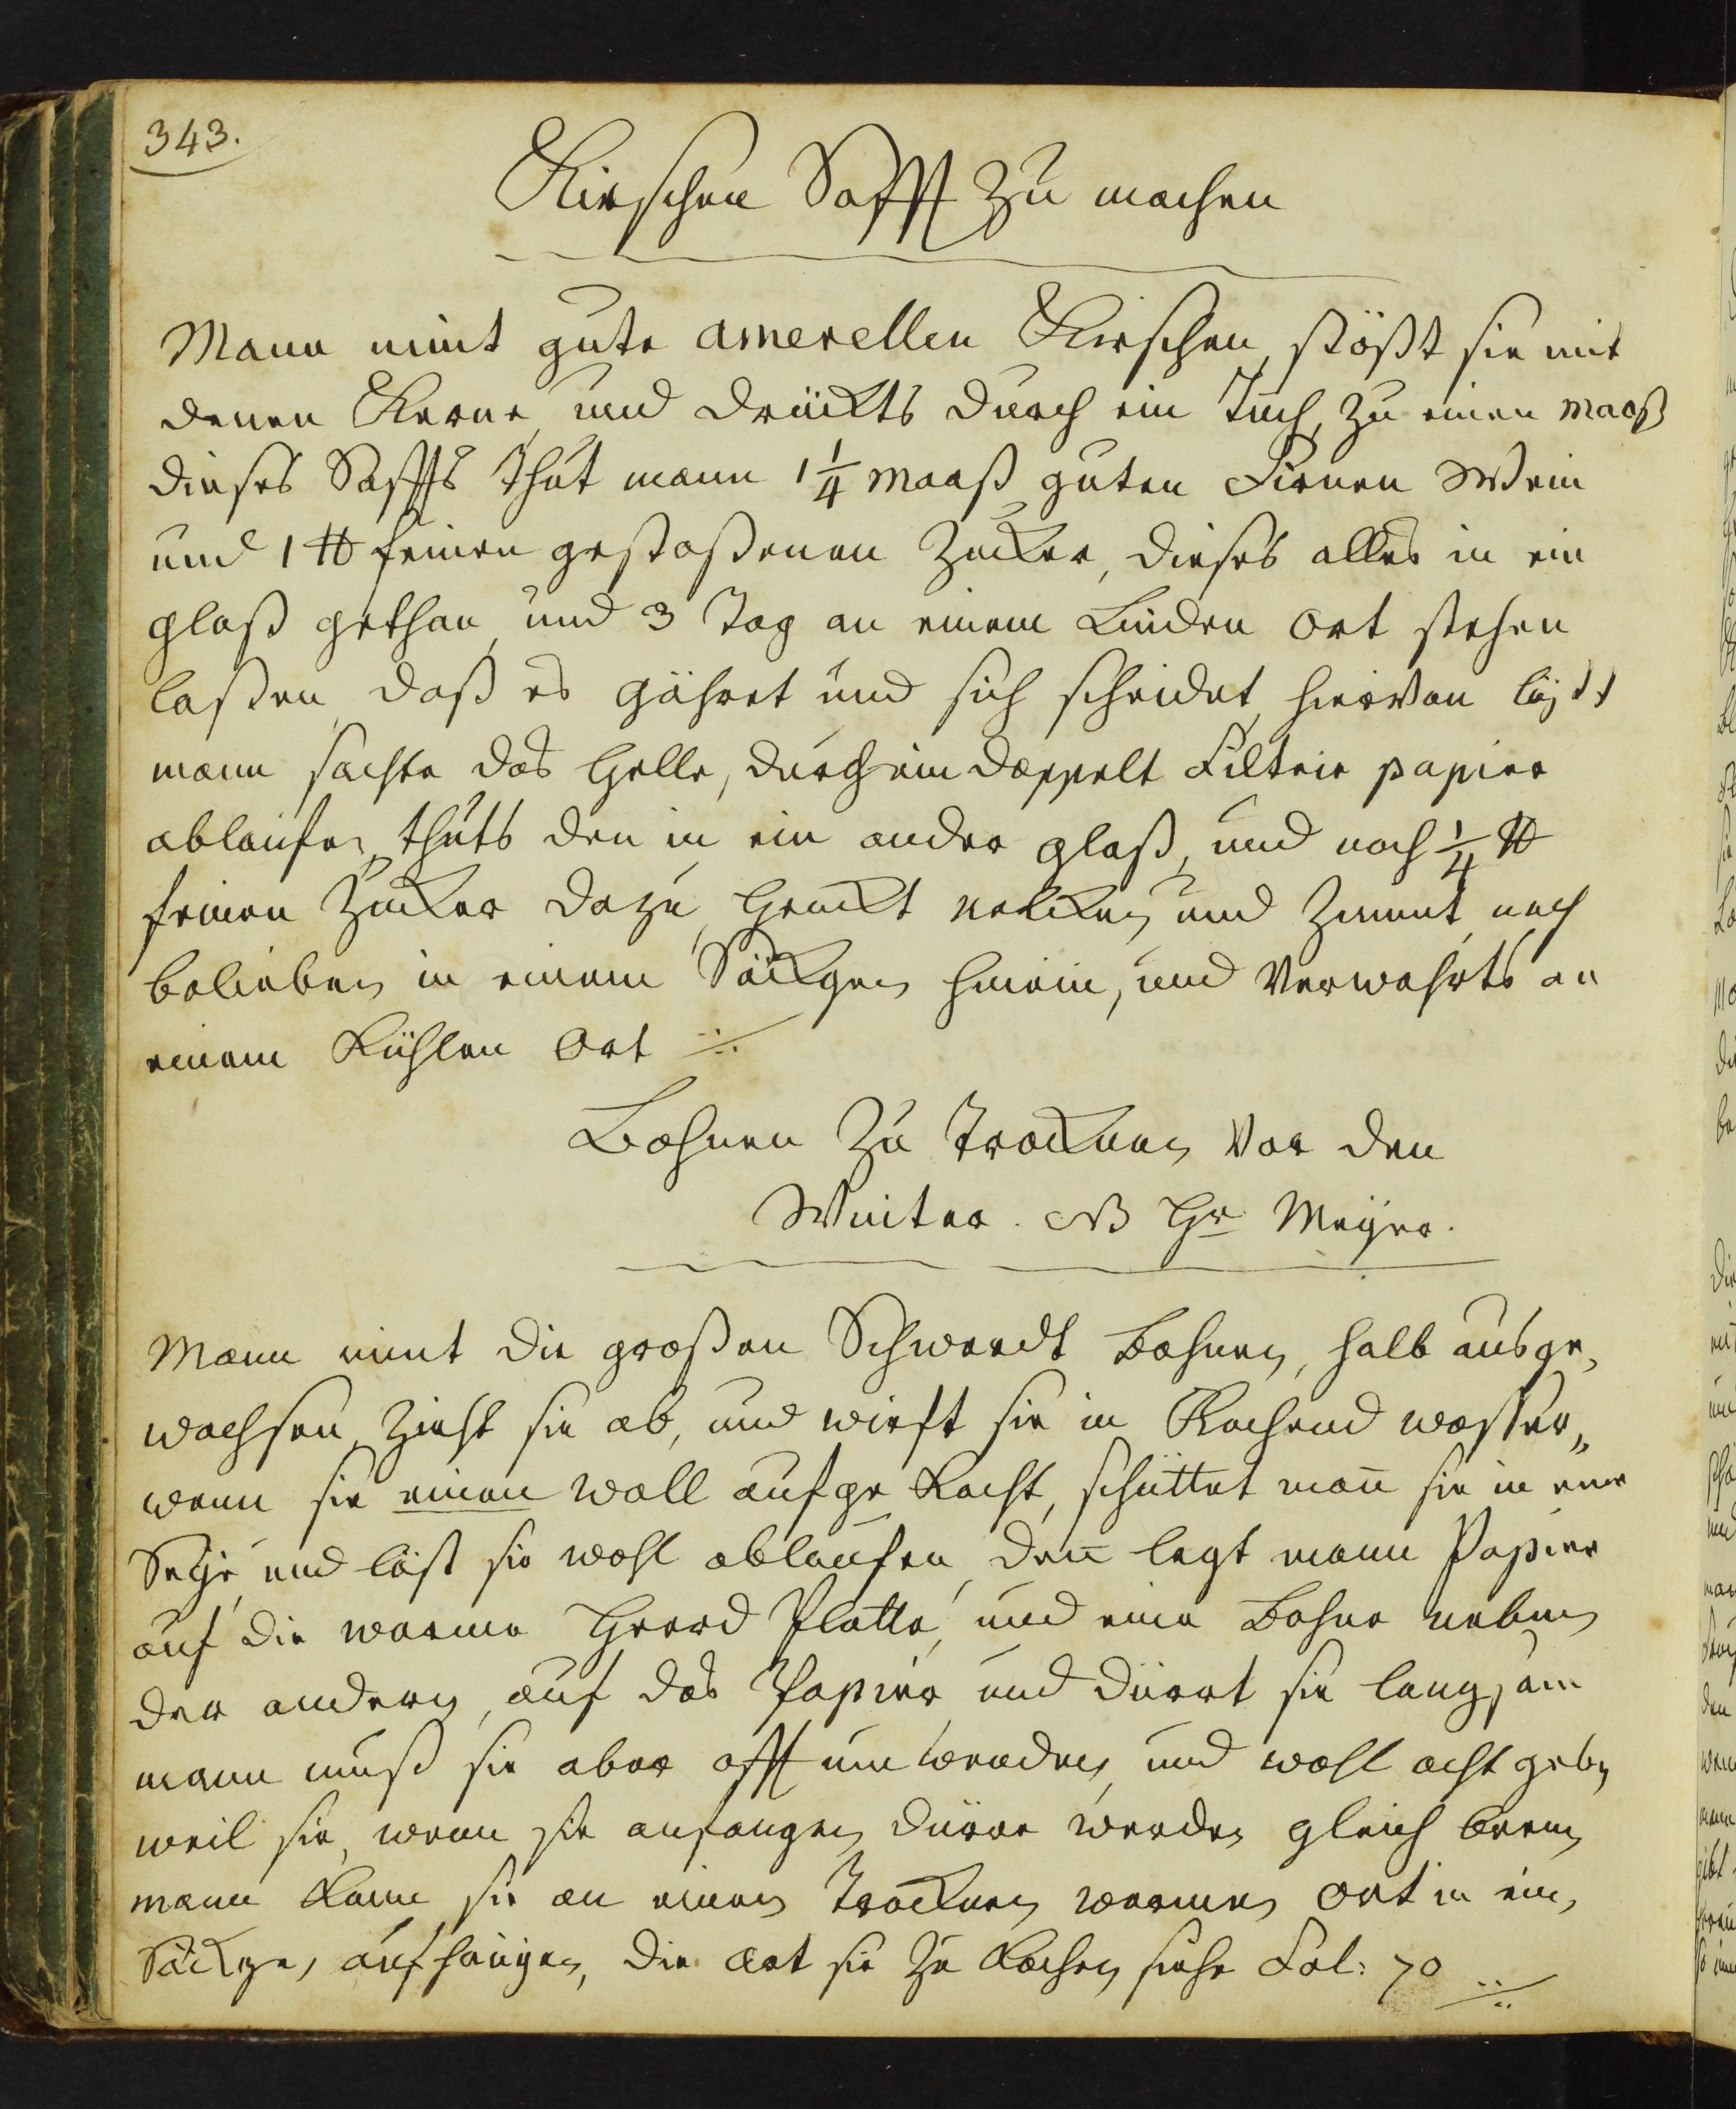 343.
Kirschen Safft zu machen
Mann nimt gute amerellen Kirschen, stößt sie mit
denen Kerne, und drückts durch ein Tuch, zu einen Maaß
dieses Saffts thut mann 1 1/4 Maaß guten Firnen Wein
und 1 ℔ feinen gestoßenen Zucker, dieses alles in ein
glaß gethan, und 3 Tag an einem Linden Ort stehen
laßen, daß es gähret und sich scheidet, hiervon läst
mann sachte das Helle, durch ein doppelt Filtrir papier
ablaufen, thuts den in ein ander glaß, und noch 1/4 ℔
feinen Zucker dazu, henckt nelcken und Zimmt, nach
belieben in einem Säckgen hinein, und Verwahrts an
einem Kühlen Ort ./.
Bohnen Zu Trocknen Vor den
Winter. NB Hr Meyer.
Mann nimt die großen Schwerdt Bohnen, halb ausge„
wachsen, Zieht sie ab, und wirft sie in Kochend wasser„
wenn sie einen wall aufge Kocht, schüttet man̄ sie in eine
Seÿe, und läst sie wohl ablaufen, den̄ legt mann Papier
auf die warme Heerd Platte, und eine Bohne neben
der andern, auf das Papier, und dürrt sie langsam
mann muß sie aber offt umwenden, und wohl acht geben
weil sie, wenn sie anfangen dürre werden gleich brenen
mann Kann sie an einen Trocknen warmen Ort in ein
Säckgen aufhängen, die Art sie Zu Kochen siehe Fol: 70 ./.